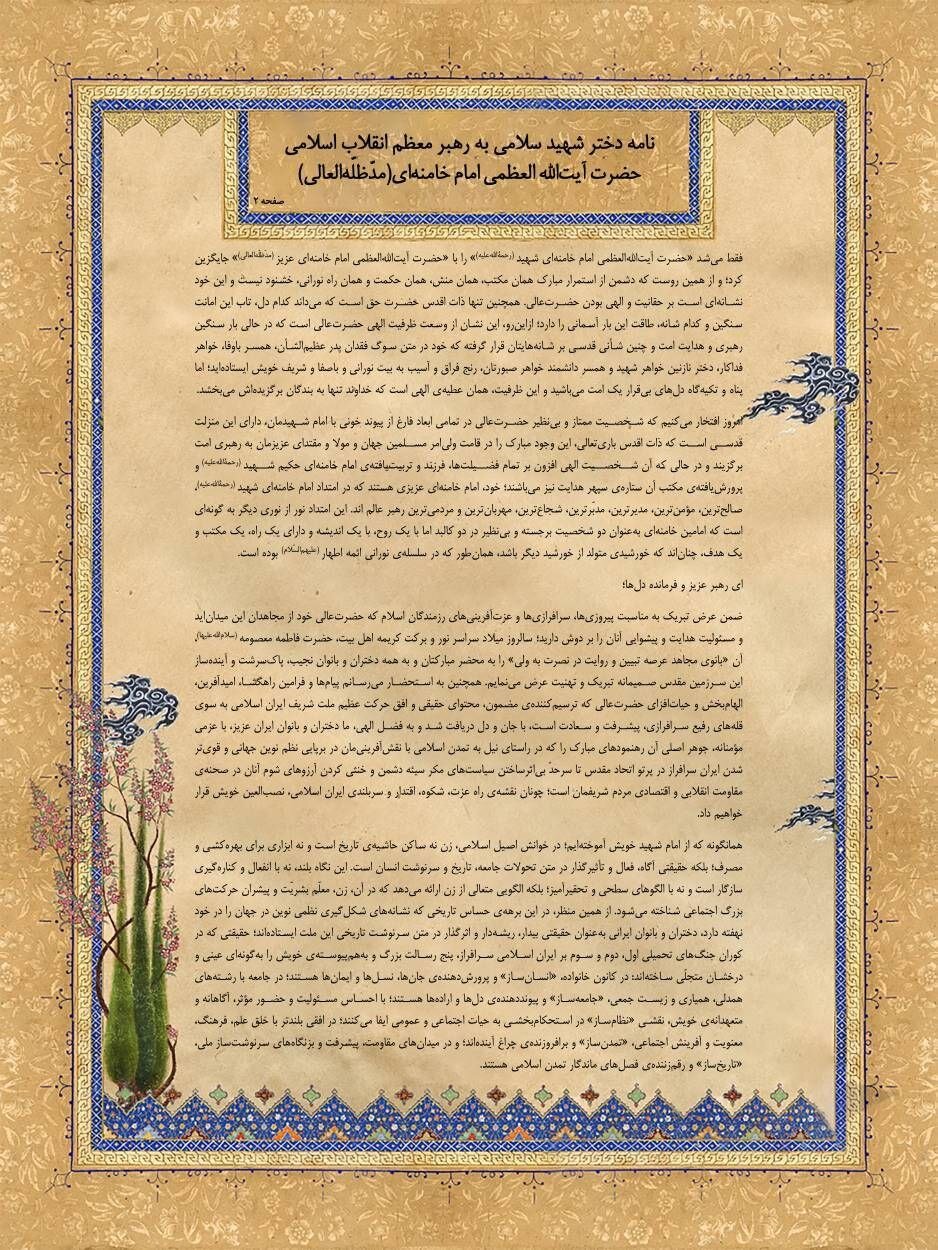 نامه دختر شهید سلامی به رهبر معظم انقلاب اسلامی
حضرت آیت‌الله العظمی امام خامنه‌ای(مدّظلّه‌العالی)
صفحه ۲
فقط می‌شد «حضرت آیت‌الله‌العظمی امام خامنه‌ای شهید (رحمةالله‌علیه)» را با «حضرت آیت‌الله‌العظمی امام خامنه‌ای عزیز (مدظله‌العالی)» جایگزین
کرد؛ و از همین روست که دشمن از استمرار مبارک همان مکتب، همان منش، همان حکمت و همان راه نورانی، خشنود نیست و این خود
نشانه‌ای است بر حقانیت و الهی بودن حضرت‌عالی. همچنین تنها ذات اقدس حضرت حق است که می‌داند کدام دل، تاب این امانت
سنگین و کدام شانه، طاقت این بار آسمانی را دارد؛ ازاین‌رو، این نشان از وسعت ظرفیت الهی حضرت‌عالی است که در حالی بار سنگین
رهبری و هدایت امت و چنین شأنی قدسی بر شانه‌هایتان قرار گرفته که خود در متن سوگ فقدان پدر عظیم‌الشأن، همسر باوفا، خواهر
فداکار، دختر نازنین خواهر شهید و همسر دانشمند خواهر صبورتان، رنج فراق و آسیب به بیت نورانی و باصفا و شریف خویش ایستاده‌اید؛ اما
پناه و تکیه‌گاه دل‌های بی‌قرار یک امت می‌باشید و این ظرفیت، همان عطیه‌ی الهی است که خداوند تنها به بندگان برگزیده‌اش می‌بخشد.
امروز افتخار می‌کنیم که شخصیت ممتاز و بی‌نظیر حضرت‌عالی در تمامی ابعاد فارغ از پیوند خونی با امام شهیدمان، دارای این منزلت
قدسی است که ذات اقدس باری‌تعالی، این وجود مبارک را در قامت ولی‌امر مسلمین جهان و مولا و مقتدای عزیزمان به رهبری امت
برگزیند و در حالی که آن شخصیت الهی افزون بر تمام فضیلت‌ها، فرزند و تربیت‌یافته‌ی امام خامنه‌ای حکیم شهید (رحمةالله‌علیه) و
پرورش‌یافته‌ی مکتب آن ستاره‌ی سپهر هدایت نیز می‌باشند؛ خود، امام خامنه‌ای عزیزی هستند که در امتداد امام خامنه‌ای شهید (رحمةالله‌علیه)،
صالح‌ترین، مؤمن‌ترین، مدیرترین، مدبّرترین، شجاع‌ترین، مهربان‌ترین و مردمی‌ترین رهبر عالم اند. این امتداد نور از نوری دیگر به گونه‌ای
است که امامین خامنه‌ای به‌عنوان دو شخصیت برجسته و بی‌نظیر در دو کالبد اما با یک روح، با یک اندیشه و دارای یک راه، یک مکتب و
یک هدف، چنان‌اند که خورشیدی متولد از خورشید دیگر باشد، همان‌طور که در سلسله‌ی نورانی ائمه اطهار (علیهم‌السلام) بوده است.
ای رهبر عزیز و فرمانده دل‌ها؛
ضمن عرض تبریک به مناسبت پیروزی‌ها، سرافرازی‌ها و عزت‌آفرینی‌های رزمندگان اسلام که حضرت‌عالی خود از مجاهدان این میدان‌اید
و مسئولیت هدایت و پیشوایی آنان را بر دوش دارید؛ سالروز میلاد سراسر نور و برکت کریمه اهل بیت، حضرت فاطمه معصومه (سلام‌الله‌علیها)،
آن «بانوی مجاهد عرصه تبیین و روایت در نصرت به ولی» را به محضر مبارکتان و به همه دختران و بانوان نجیب، پاک‌سرشت و آینده‌ساز
این سرزمین مقدس صمیمانه تبریک و تهنیت عرض می‌نمایم. همچنین به استحضار می‌رسانم پیام‌ها و فرامین راهگشا، امیدآفرین،
الهام‌بخش و حیات‌افزای حضرت‌عالی که ترسیم‌کننده‌ی مضمون، محتوای حقیقی و افق حرکت عظیم ملت شریف ایران اسلامی به سوی
قله‌های رفیع سرافرازی، پیشرفت و سعادت است، با جان و دل دریافت شد و به فضل الهی، ما دختران و بانوان ایران عزیز، با عزمی
مؤمنانه، جوهر اصلی آن رهنمودهای مبارک را که در راستای نیل به تمدن اسلامی با نقش‌آفرینی‌مان در برپایی نظم نوین جهانی و قوی‌تر
شدن ایران سرافراز در پرتو اتحاد مقدس تا سرحدّ بی‌اثرساختن سیاست‌های مکر سینه دشمن و خنثی کردن آرزوهای شوم آنان در صحنه‌ی
مقاومت انقلابی و اقتصادی مردم شریفمان است؛ چونان نقشه‌ی راه عزت، شکوه، اقتدار و سربلندی ایران اسلامی، نصب‌العین خویش قرار
خواهیم داد.
همانگونه که از امام شهید خویش آموخته‌ایم؛ در خوانش اصیل اسلامی، زن نه ساکن حاشیه‌ی تاریخ است و نه ابزاری برای بهره‌کشی و
مصرف؛ بلکه حقیقتی آگاه، فعال و تأثیرگذار در متن تحولات جامعه، تاریخ و سرنوشت انسان است. این نگاه بلند، نه با انفعال و کناره‌گیری
سازگار است و نه با الگوهای سطحی و تحقیرآمیز؛ بلکه الگویی متعالی از زن ارائه می‌دهد که در آن، زن، معلّم بشریّت و پیشران حرکت‌های
بزرگ اجتماعی شناخته می‌شود. از همین منظر، در این برهه‌ی حساس تاریخی که نشانه‌های شکل‌گیری نظمی نوین در جهان را در خود
نهفته دارد، دختران و بانوان ایرانی به‌عنوان حقیقتی بیدار، ریشه‌دار و اثرگذار در متن سرنوشت تاریخی این ملت ایستاده‌اند؛ حقیقتی که در
کوران جنگ‌های تحمیلی اول، دوم و سوم بر ایران اسلامی سرافراز، پنج رسالت بزرگ و به‌هم‌پیوسته‌ی خویش را به‌گونه‌ای عینی و
درخشان متجلّی ساخته‌اند: در کانون خانواده، «انسان‌ساز» و پرورش‌دهنده‌ی جان‌ها، نسل‌ها و ایمان‌ها هستند؛ در جامعه با رشته‌های
همدلی، همیاری و زیست جمعی، «جامعه‌ساز» و پیونددهنده‌ی دل‌ها و اراده‌ها هستند؛ با احساس مسئولیت و حضور مؤثر، آگاهانه و
متعهدانه‌ی خویش، نقشی «نظام‌ساز» در استحکام‌بخشی به حیات اجتماعی و عمومی ایفا می‌کنند؛ در افقی بلندتر با خلق علم، فرهنگ،
معنویت و آفرینش اجتماعی، «تمدن‌ساز» و برافروزنده‌ی چراغ آینده‌اند؛ و در میدان‌های مقاومت، پیشرفت و بزنگاه‌های سرنوشت‌ساز ملی،
«تاریخ‌ساز» و رقم‌زننده‌ی فصل‌های ماندگار تمدن اسلامی هستند.